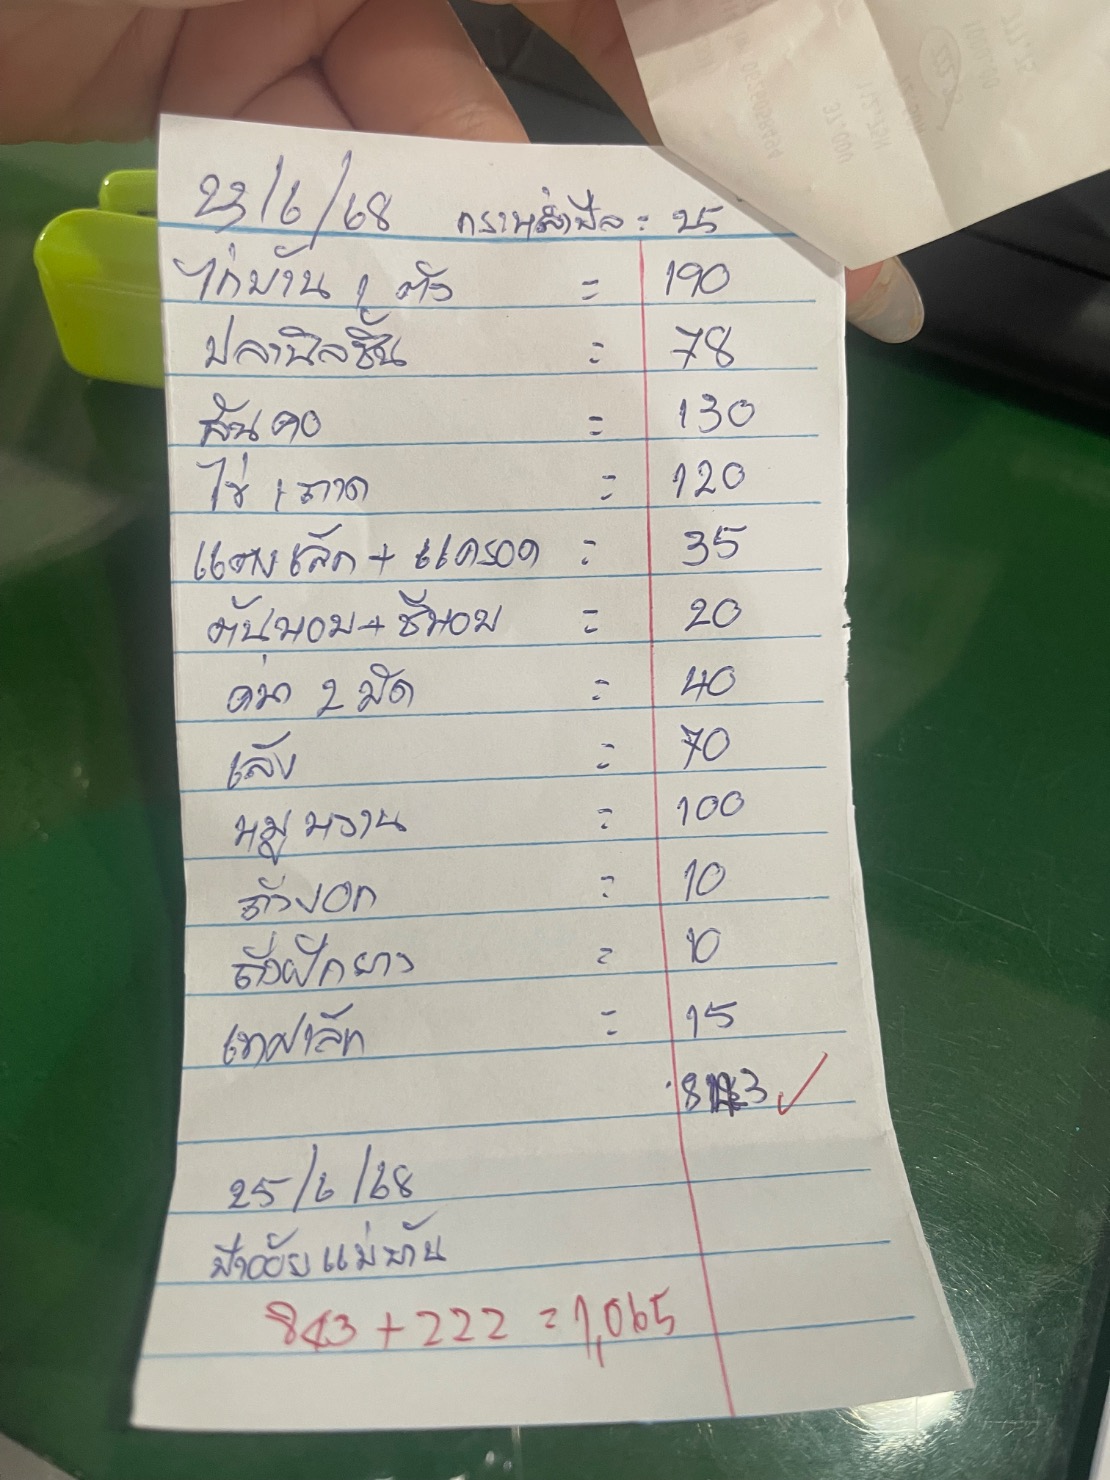 23/6/68 กราน้ำปีด = 25
ไก่บ้าน 1 ตัว = 190
ปลานิลชิ้น = 78
สันคอ = 130
ไข่ 1 ถาด = 120
แตงเล็ก + แครอด = 35
ต้นหอม + ชีหอม = 20
คะน้า 2 มัด = 40
เล้ง = 70
หมูหวาน = 100
ถั่วงอก = 10
ถั่วฝักยาว = 10
เทศเล็ก = 15
843
25/6/68
ป้าอ้อยแม่บ้าน
843 + 222 = 1,065